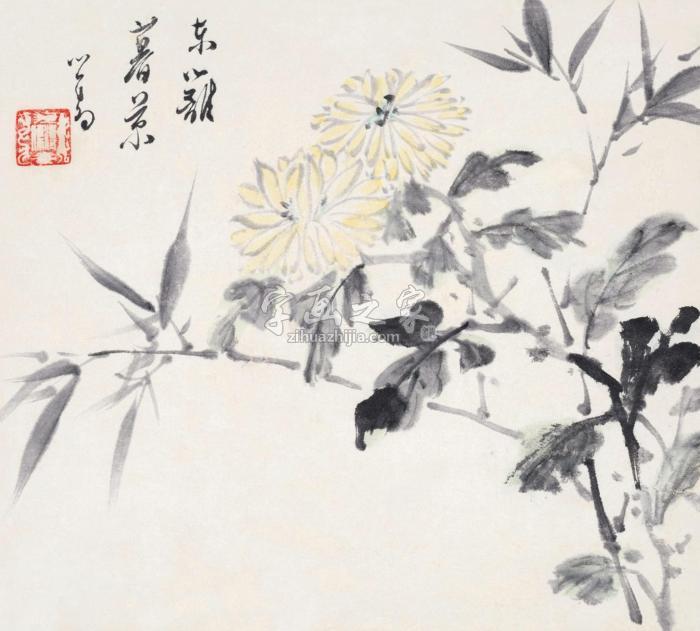 東籬
暮景
心畬
字画之家
zihuazhijia.com